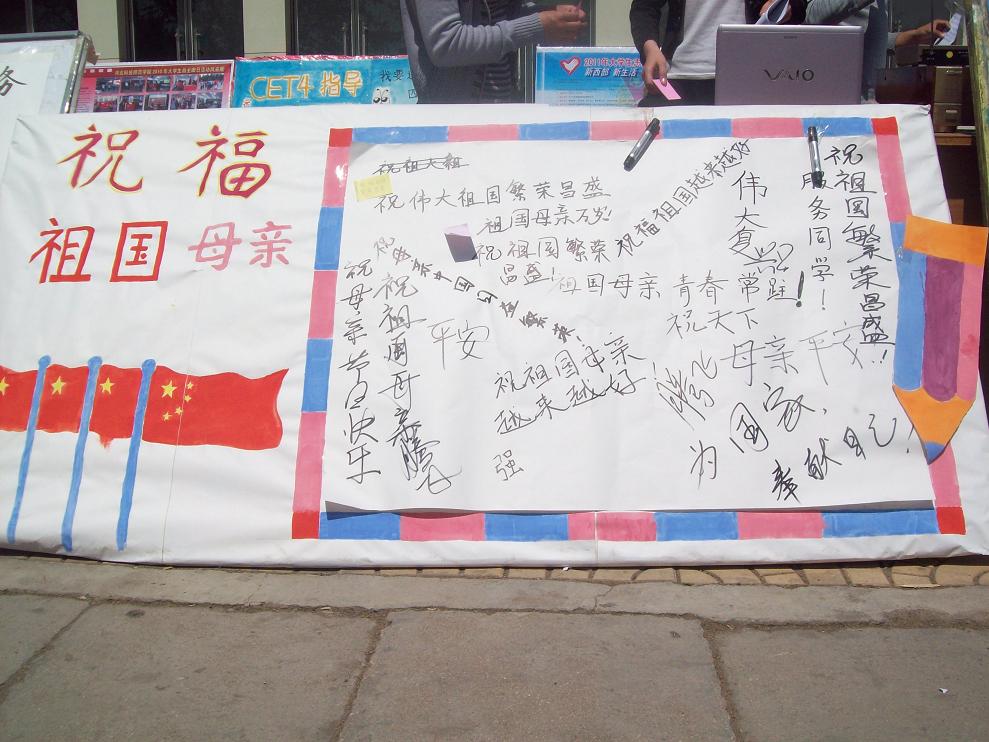 务
CET4指导
我要
2011年大学生
新西部 新生活
VAIO
祝福
祖国母亲
祝祖大祖
祝伟大祖国繁荣昌盛
祖国母亲万岁!
祝祖国繁荣
昌盛!
祝福祖国越来越好
祖国母亲
青春常驻!
祝天下
母亲平安
伟大
服务同学!
祝祖国繁荣昌盛!
祝母亲节日快乐
祝祖国母亲腾飞
平安
祝祖国母亲
越来越好!
强
腾飞
为国家,
奉献自己!